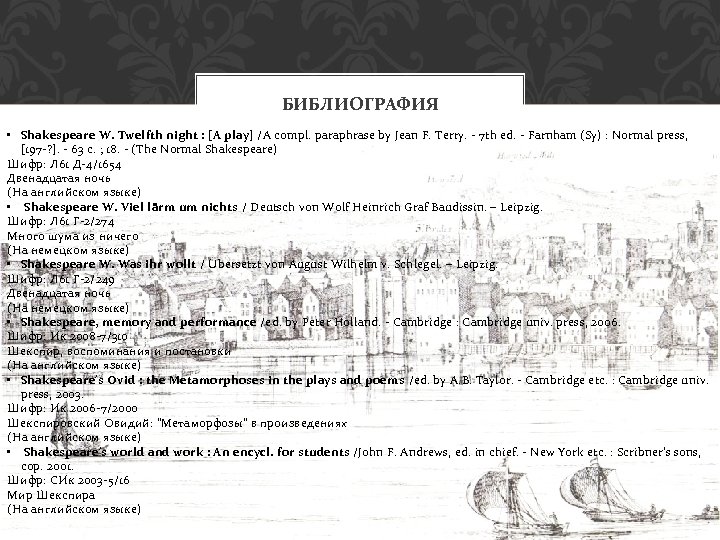 БИБЛИОГРАФИЯ
• Shakespeare W. Twelfth night : [A play] /A compl. paraphrase by Jean F. Terry. - 7th ed. - Farnham (Sy) : Normal press,
[197-?]. - 63 с. ; 18. - (The Normal Shakespeare)
Шифр: Л61 Д-4/1654
Двенадцатая ночь
(На английском языке)
• Shakespeare W. Viel lärm um nichts / Deutsch von Wolf Heinrich Graf Baudissin. – Leipzig.
Шифр: Л61 Г-2/274
Много шума из ничего
(На немецком языке)
• Shakespeare W. Was ihr wollt / Übersetzt von August Wilhelm v. Schlegel. – Leipzig.
Шифр: Л61 Г-2/249
Двенадцатая ночь
(На немецком языке)
• Shakespeare, memory and performance /ed. by Peter Holland. - Cambridge : Cambridge univ. press, 2006.
Шифр: Ик 2008-7/310
Шекспир, воспоминания и постановки
(На английском языке)
• Shakespeare's Ovid : the Metamorphoses in the plays and poems /ed. by A.B. Taylor. - Cambridge etc. : Cambridge univ.
press, 2003.
Шифр: Ик 2006-7/2000
Шекспировский Овидий: "Метаморфозы" в произведениях
(На английском языке)
• Shakespeare's world and work : An encycl. for students /John F. Andrews, ed. in chief. - New York etc. : Scribner's sons,
cop. 2001.
Шифр: СИк 2003-5/16
Мир Шекспира
(На английском языке)